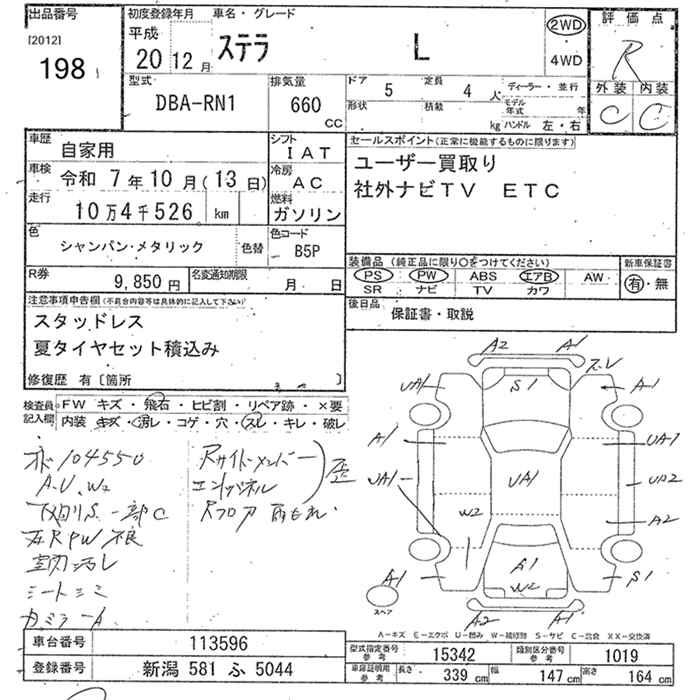 出品番号 初度登録年月 車名・グレード 評価点
[2012] 平成
198 20 12 月 ステラ L 2WD R
4WD
型式 排気量 ドア 5 定員 4 人 ディーラー・並行 外装 内装
DBA-RN1 660 CC 形状 積載 kg モデル年式 年 C C
ハンドル 左・右
車歴 自家用 シフト IAT セールスポイント(正常に機能するものに限ります)
車検 令和 7年 10月(13日) 冷房 AC ユーザー買取り
走行 10万4千526 km 燃料 ガソリン 社外ナビTV ETC
色 シャンパン・メタリック 色替 色コード B5P
装備品(純正品に限り○をつけてください) 新車保証書
PS PW ABS エアB AW 有・無
SR ナビ TV カワ
R券 9,850円 名変通知期限 月 日
後日品 保証書・取説
注意事項申告欄(不具合内容等は具体的に記入して下さい)
スタッドレス
夏タイヤセット積込み
修復歴 有〔箇所 〕
検査員記入欄 FW キズ・飛石・ヒビ割・リペア跡・×要
内装 キズ・汚レ・コゲ・穴・スレ・キレ・破レ
104550 Rサイドメンバー
A.U.W2 エンドパネル 歴
下廻りS 一部C Rフロア 雨もれ
左RPW不良
室内汚レ
シートシミ
A2 A1
UA1 S1 スレ A1
A1 UA1
UA1 UA1 UA2
W2 A2
A1 A1 W2 S1
スペア A2 A1
A-キズ E-エクボ U-凹み W-補修跡 S-サビ C-腐食 XX-交換済
車台番号 113596 型式指定番号 参考 15342 類別区分番号 参考 1019
登録番号 新潟 581 ふ 5044 車庫証明用 参考 長さ 339 cm 幅 147 cm 高さ 164 cm